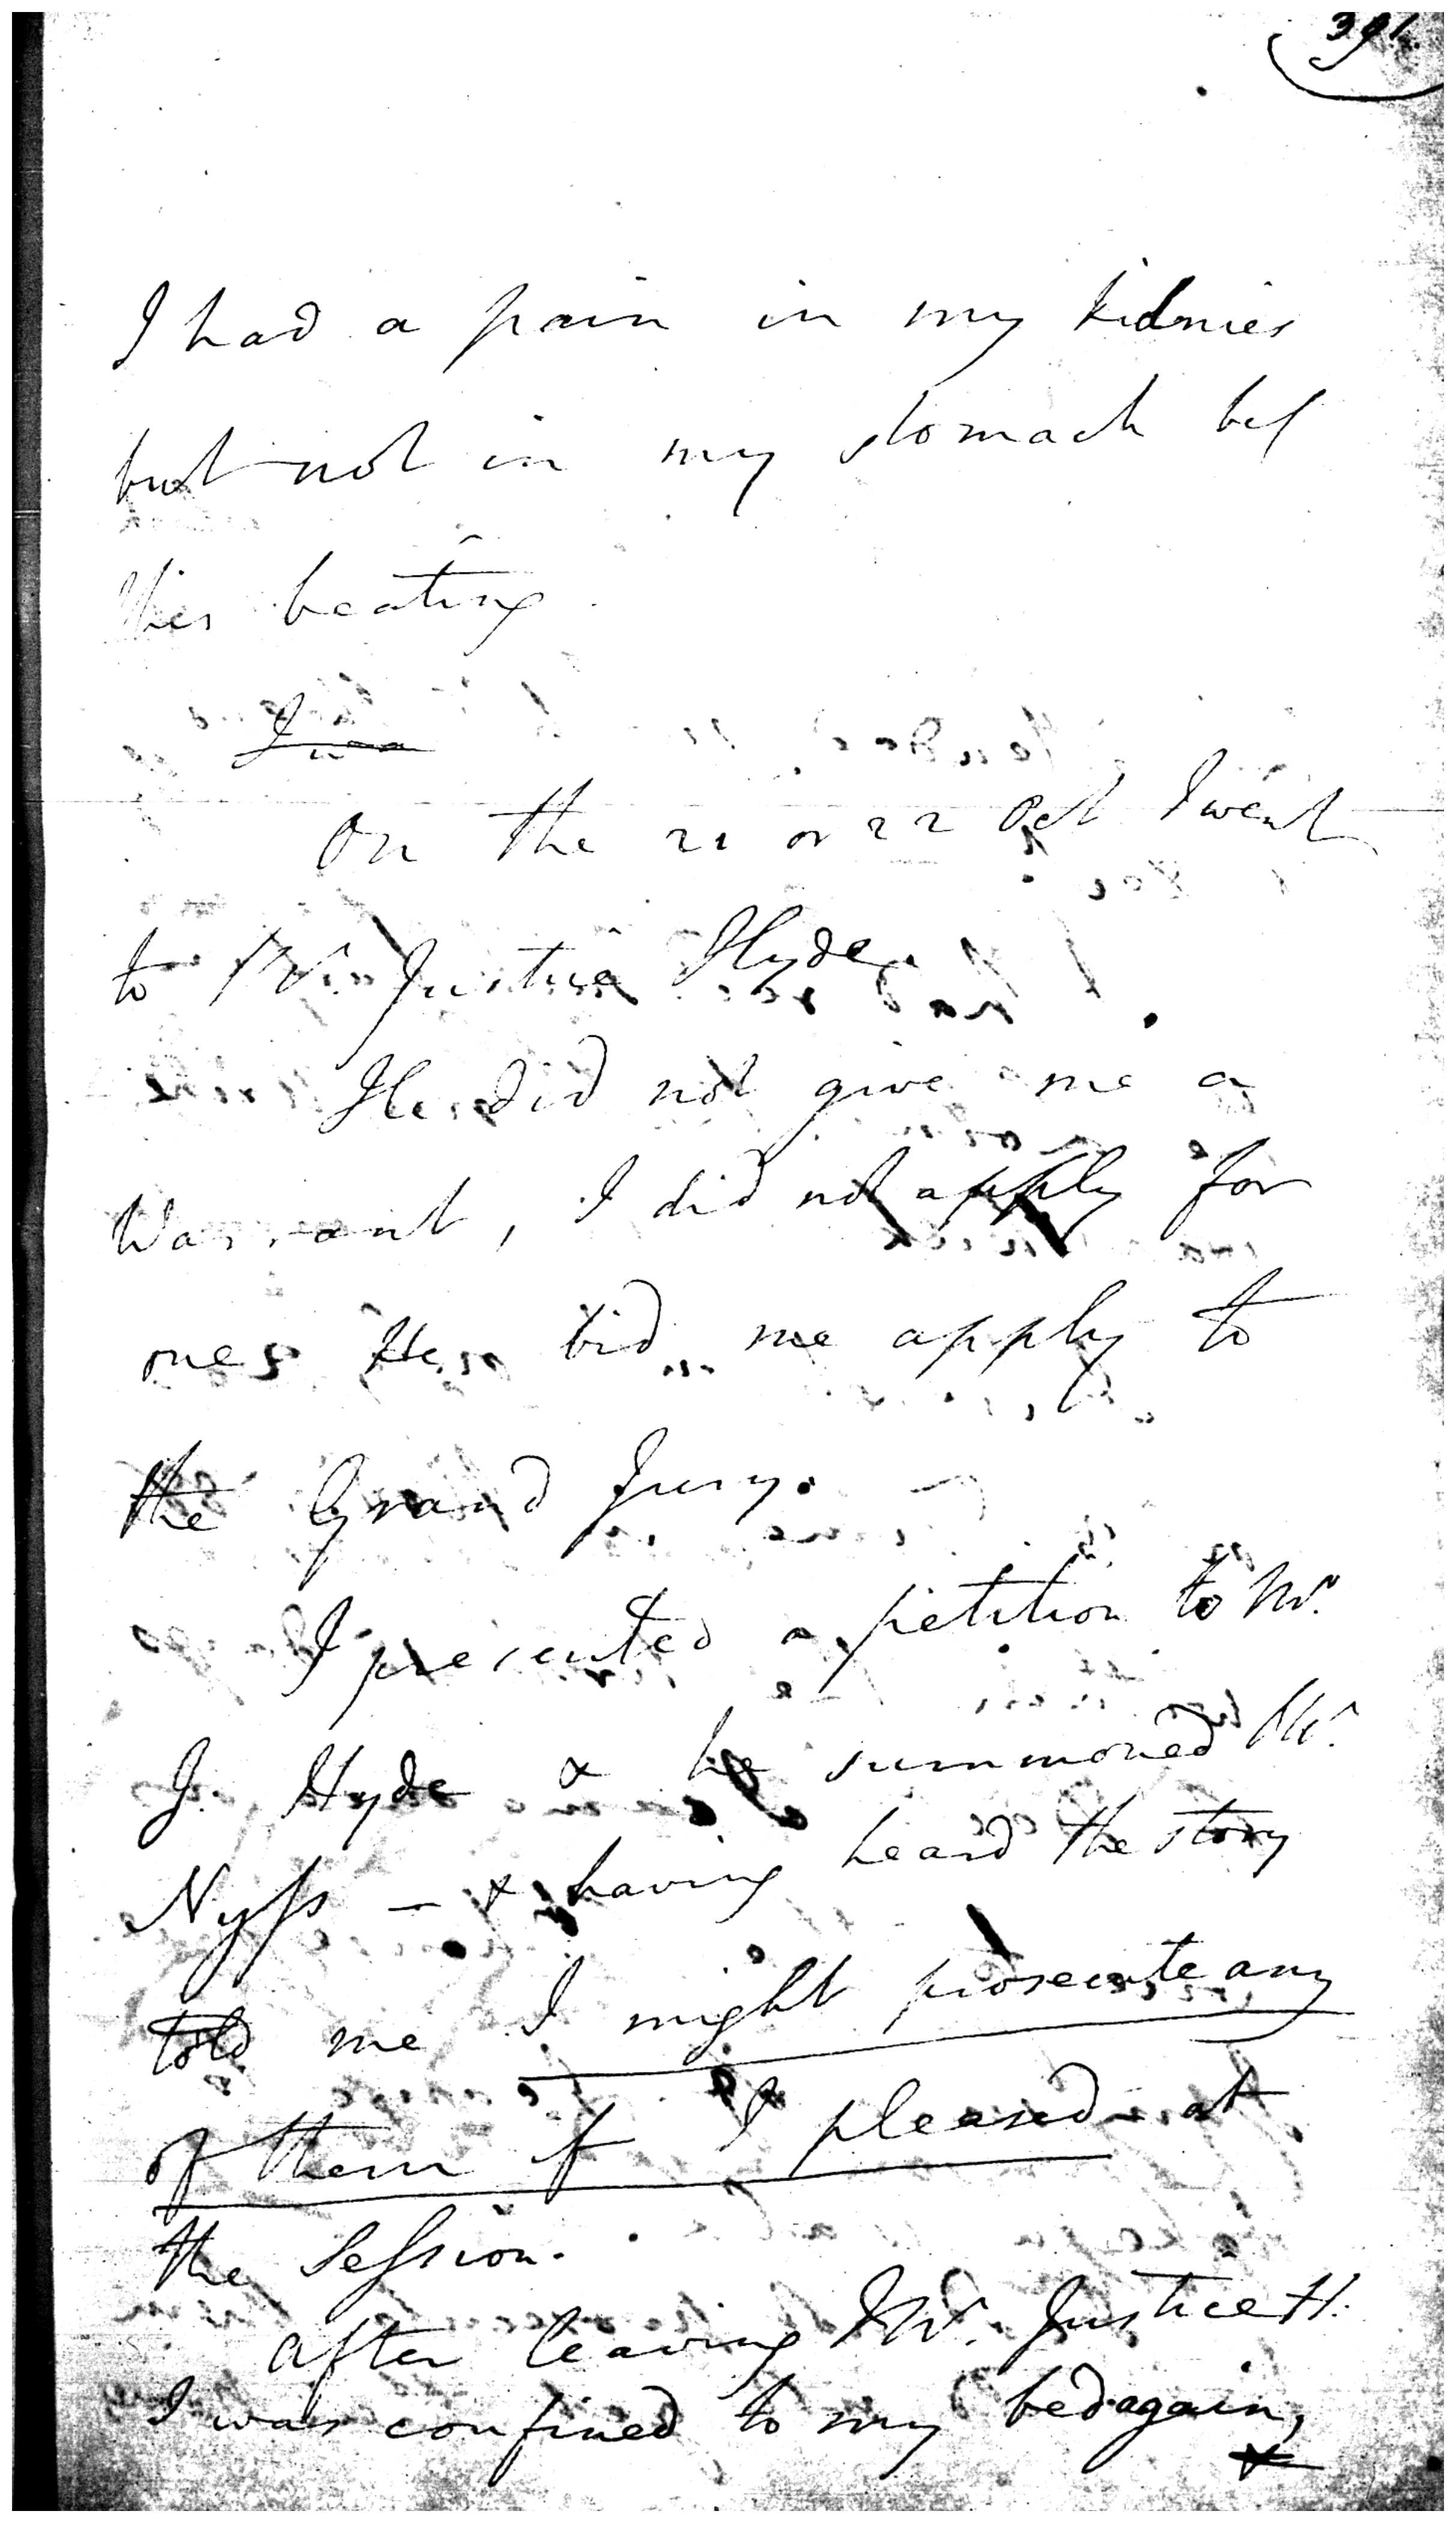 391.
I had a pain in my kidnies
but not in my stomach bef
this beating.
I was
On the 21 or 22 Oct I went
to Mr. Justice Hyde.
He did not give me a
Warrant, I did not apply for
one, He bid me apply to
the Grand Jury.
I presented a petition to Mr.
J. Hyde & he summoned Mr.
Nyss — & having heard the story
told me I might prosecute any
of them if I pleased at
the Session.
after leaving Mr. Justice H.
I was confined to my bed again,
&